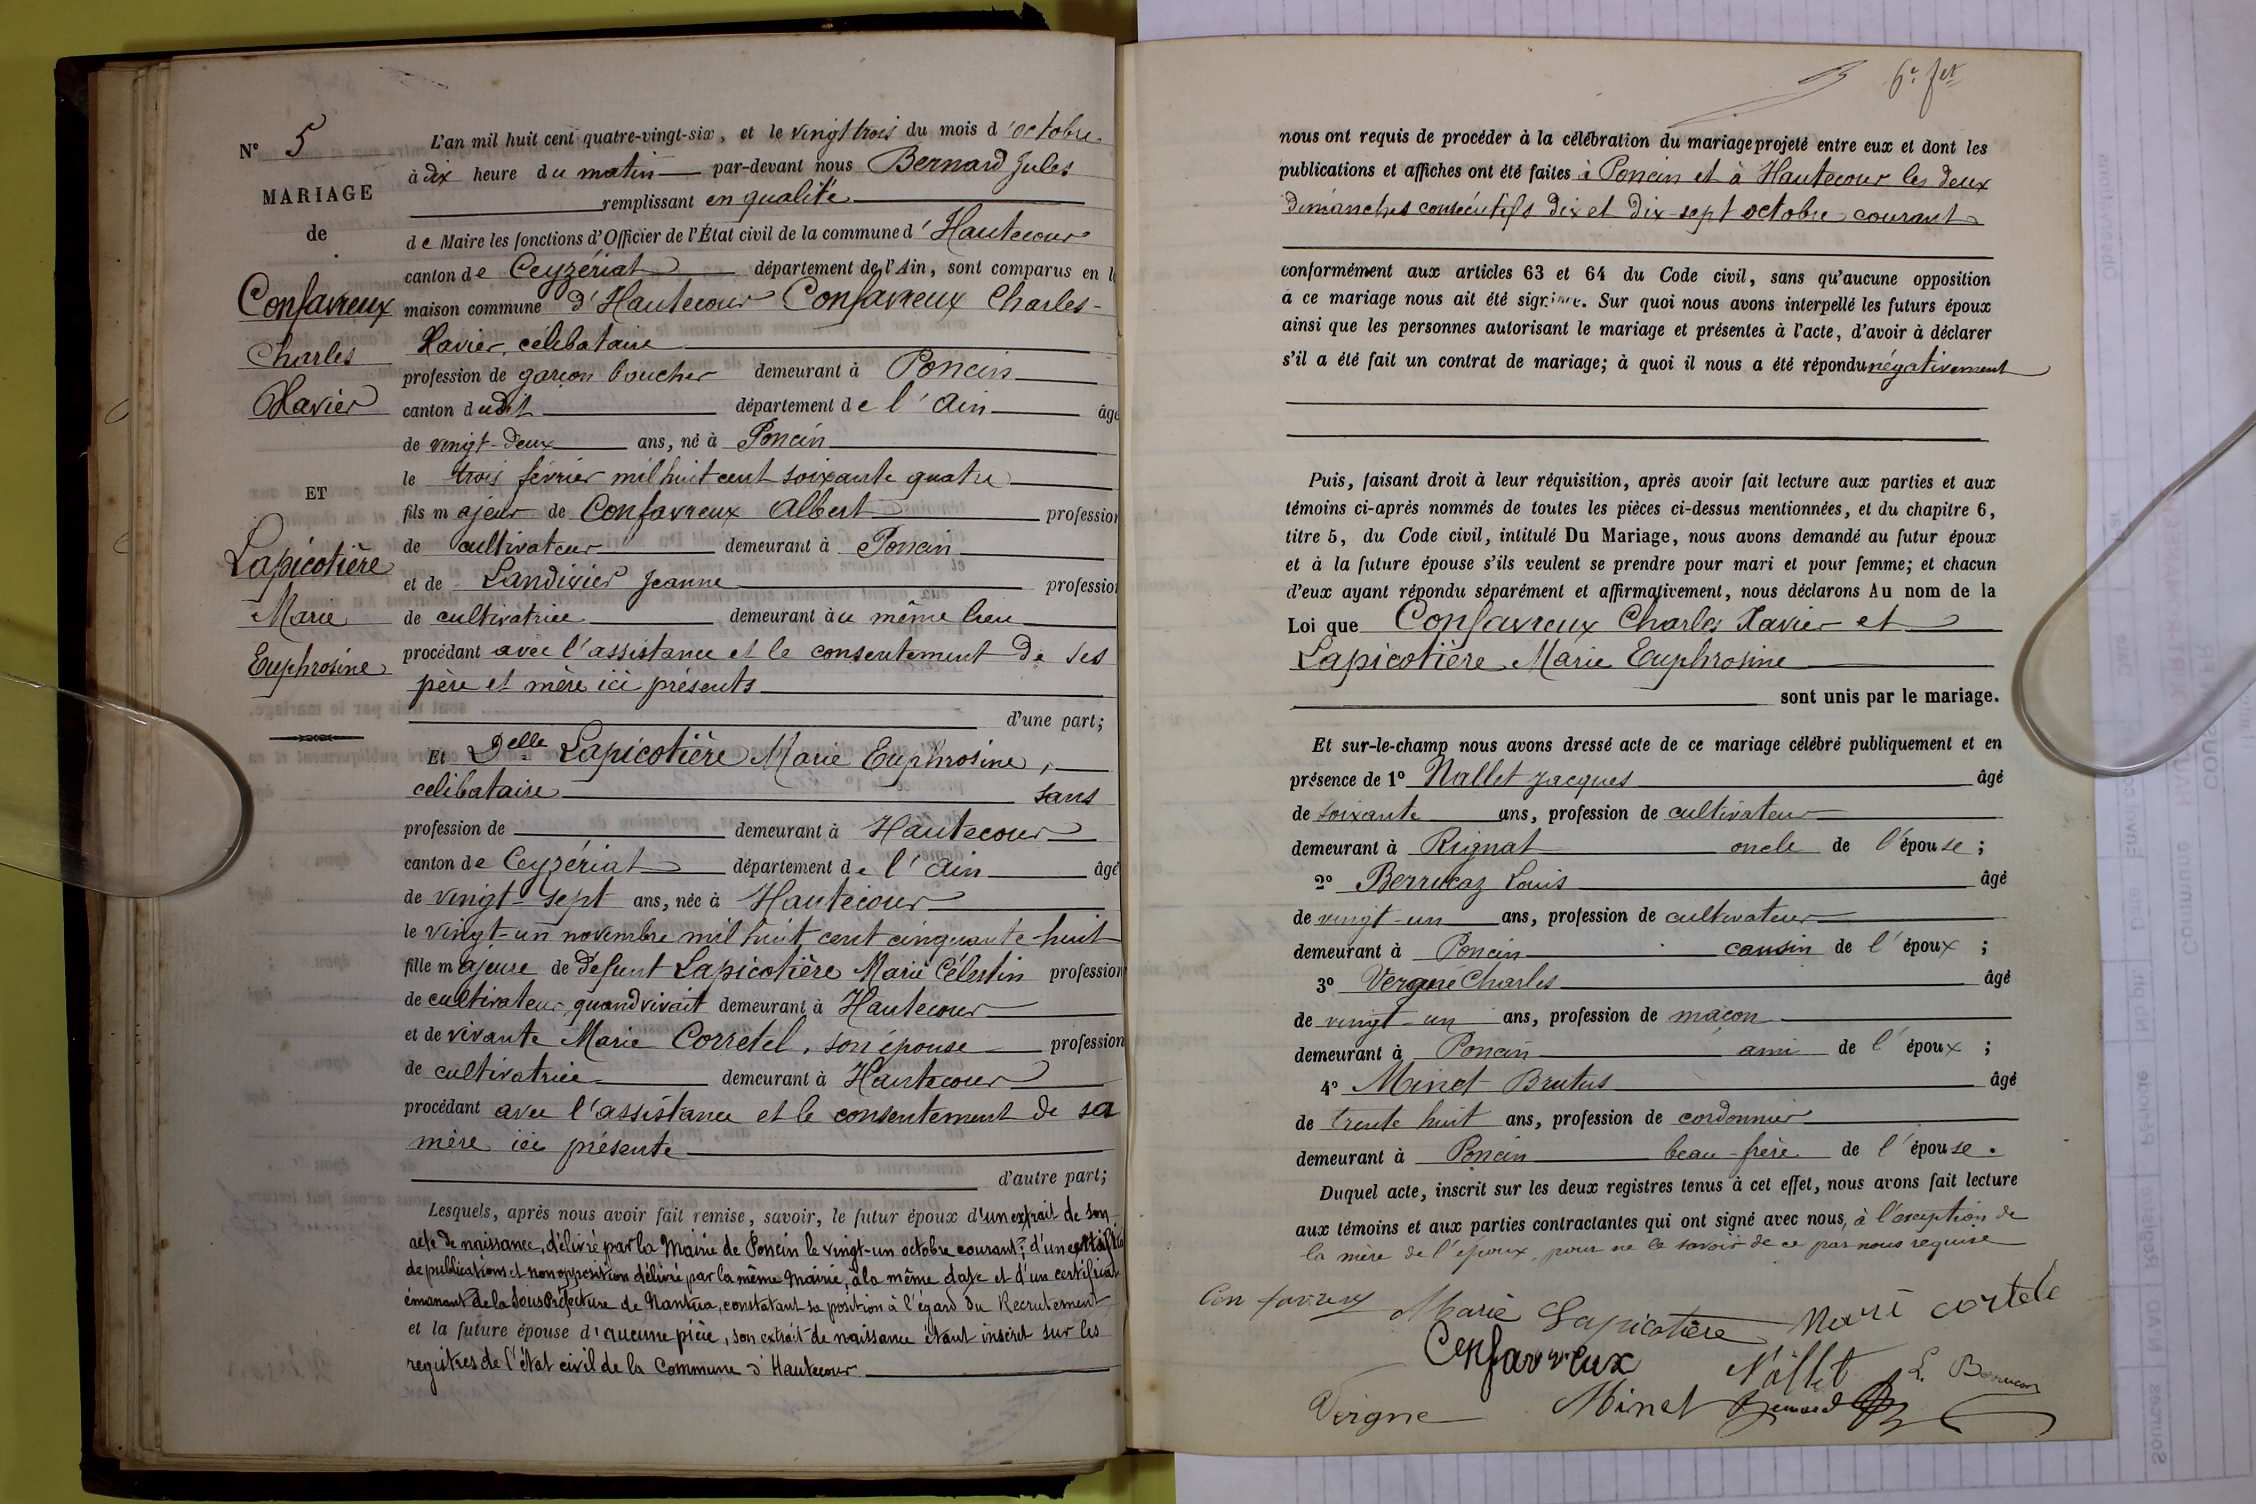 N° 5
MARIAGE
de
Confavreux
Charles
Xavier
ET
Lapicotière
Marie
Euphrosine
L'an mil huit cent quatre-vingt-six, et le vingt trois du mois d'octobre
à dix heure du matin par-devant nous Bernard Jules
remplissant en qualité
de Maire les fonctions d'Officier de l'État civil de la commune d'Hautecour
canton de Ceyzériat département de l'Ain, sont comparus en l
maison commune d'Hautecour Confavreux Charles-
Xavier, célibataire
profession de garçon boucher demeurant à Poncin
canton dudit département de l'Ain âgé
de vingt-deux ans, né à Poncin
le trois février mil huit cent soixante quatre
fils majeur de Confavreux Albert profession
de cultivateur demeurant à Poncin
et de Landivier Jeanne profession
de cultivatrice demeurant au même lieu
procédant avec l'assistance et le consentement de ses
père et mère ici présents
d'une part;
Et Delle Lapicotière Marie Euphrosine,
célibataire sans
profession de demeurant à Hautecour
canton de Ceyzériat département de l'Ain âgé
de vingt-sept ans, née à Hautecour
le vingt-un novembre mil huit cent cinquante-huit
fille majeure de défunt Lapicotière Marie Célestin profession
de cultivateur, quand vivait demeurant à Hautecour
et de vivante Marie Corretel, son épouse profession
de cultivatrice demeurant à Hautecour
procédant avec l'assistance et le consentement de sa
mère ici présente
d'autre part;
Lesquels, après nous avoir fait remise, savoir, le futur époux d'un extrait de son
acte de naissance, délivré par la Mairie de Poncin le vingt-un octobre courant; d'un certificat
de publications et non opposition délivré par la même Mairie, à la même date et d'un certificat
émanant de la Sous Préfecture de Nantua, constatant sa position à l'égard du Recrutement
et la future épouse d'aucune pièce, son extrait de naissance étant inscrit sur les
registres de l'état civil de la Commune d'Hautecour
nous ont requis de procéder à la célébration du mariage projeté entre eux et dont les
publications et affiches ont été faites à Poncin et à Hautecour les deux
dimanches consécutifs dix et dix-sept octobre courant
conformément aux articles 63 et 64 du Code civil, sans qu'aucune opposition
à ce mariage nous ait été signifiée. Sur quoi nous avons interpellé les futurs époux
ainsi que les personnes autorisant le mariage et présentes à l'acte, d'avoir à déclarer
s'il a été fait un contrat de mariage; à quoi il nous a été répondu négativement
Puis, faisant droit à leur réquisition, après avoir fait lecture aux parties et aux
témoins ci-après nommés de toutes les pièces ci-dessus mentionnées, et du chapitre 6,
titre 5, du Code civil, intitulé Du Mariage, nous avons demandé au futur époux
et à la future épouse s'ils veulent se prendre pour mari et pour femme; et chacun
d'eux ayant répondu séparément et affirmativement, nous déclarons Au nom de la
Loi que Confavreux Charles Xavier et
Lapicotière Marie Euphrosine
sont unis par le mariage.
Et sur-le-champ nous avons dressé acte de ce mariage célébré publiquement et en
présence de 1° Nallet Jacques âgé
de soixante ans, profession de cultivateur
demeurant à Rignat oncle de l'épouse;
2° Berrucaz Louis âgé
de vingt-un ans, profession de cultivateur
demeurant à Poncin cousin de l'époux;
3° Vergne Charles âgé
de vingt-un ans, profession de maçon
demeurant à Poncin ami de l'époux;
4° Minet Brutus âgé
de trente huit ans, profession de cordonnier
demeurant à Poncin beau-frère de l'épouse.
Duquel acte, inscrit sur les deux registres tenus à cet effet, nous avons fait lecture
aux témoins et aux parties contractantes qui ont signé avec nous, à l'exception de
la mère de l'époux, pour ne le savoir de ce par nous requise
Confavreux Marie Lapicotière Marie cortele
Confavreux Nallet L. Berrucaz
Vergne Minet Bernard